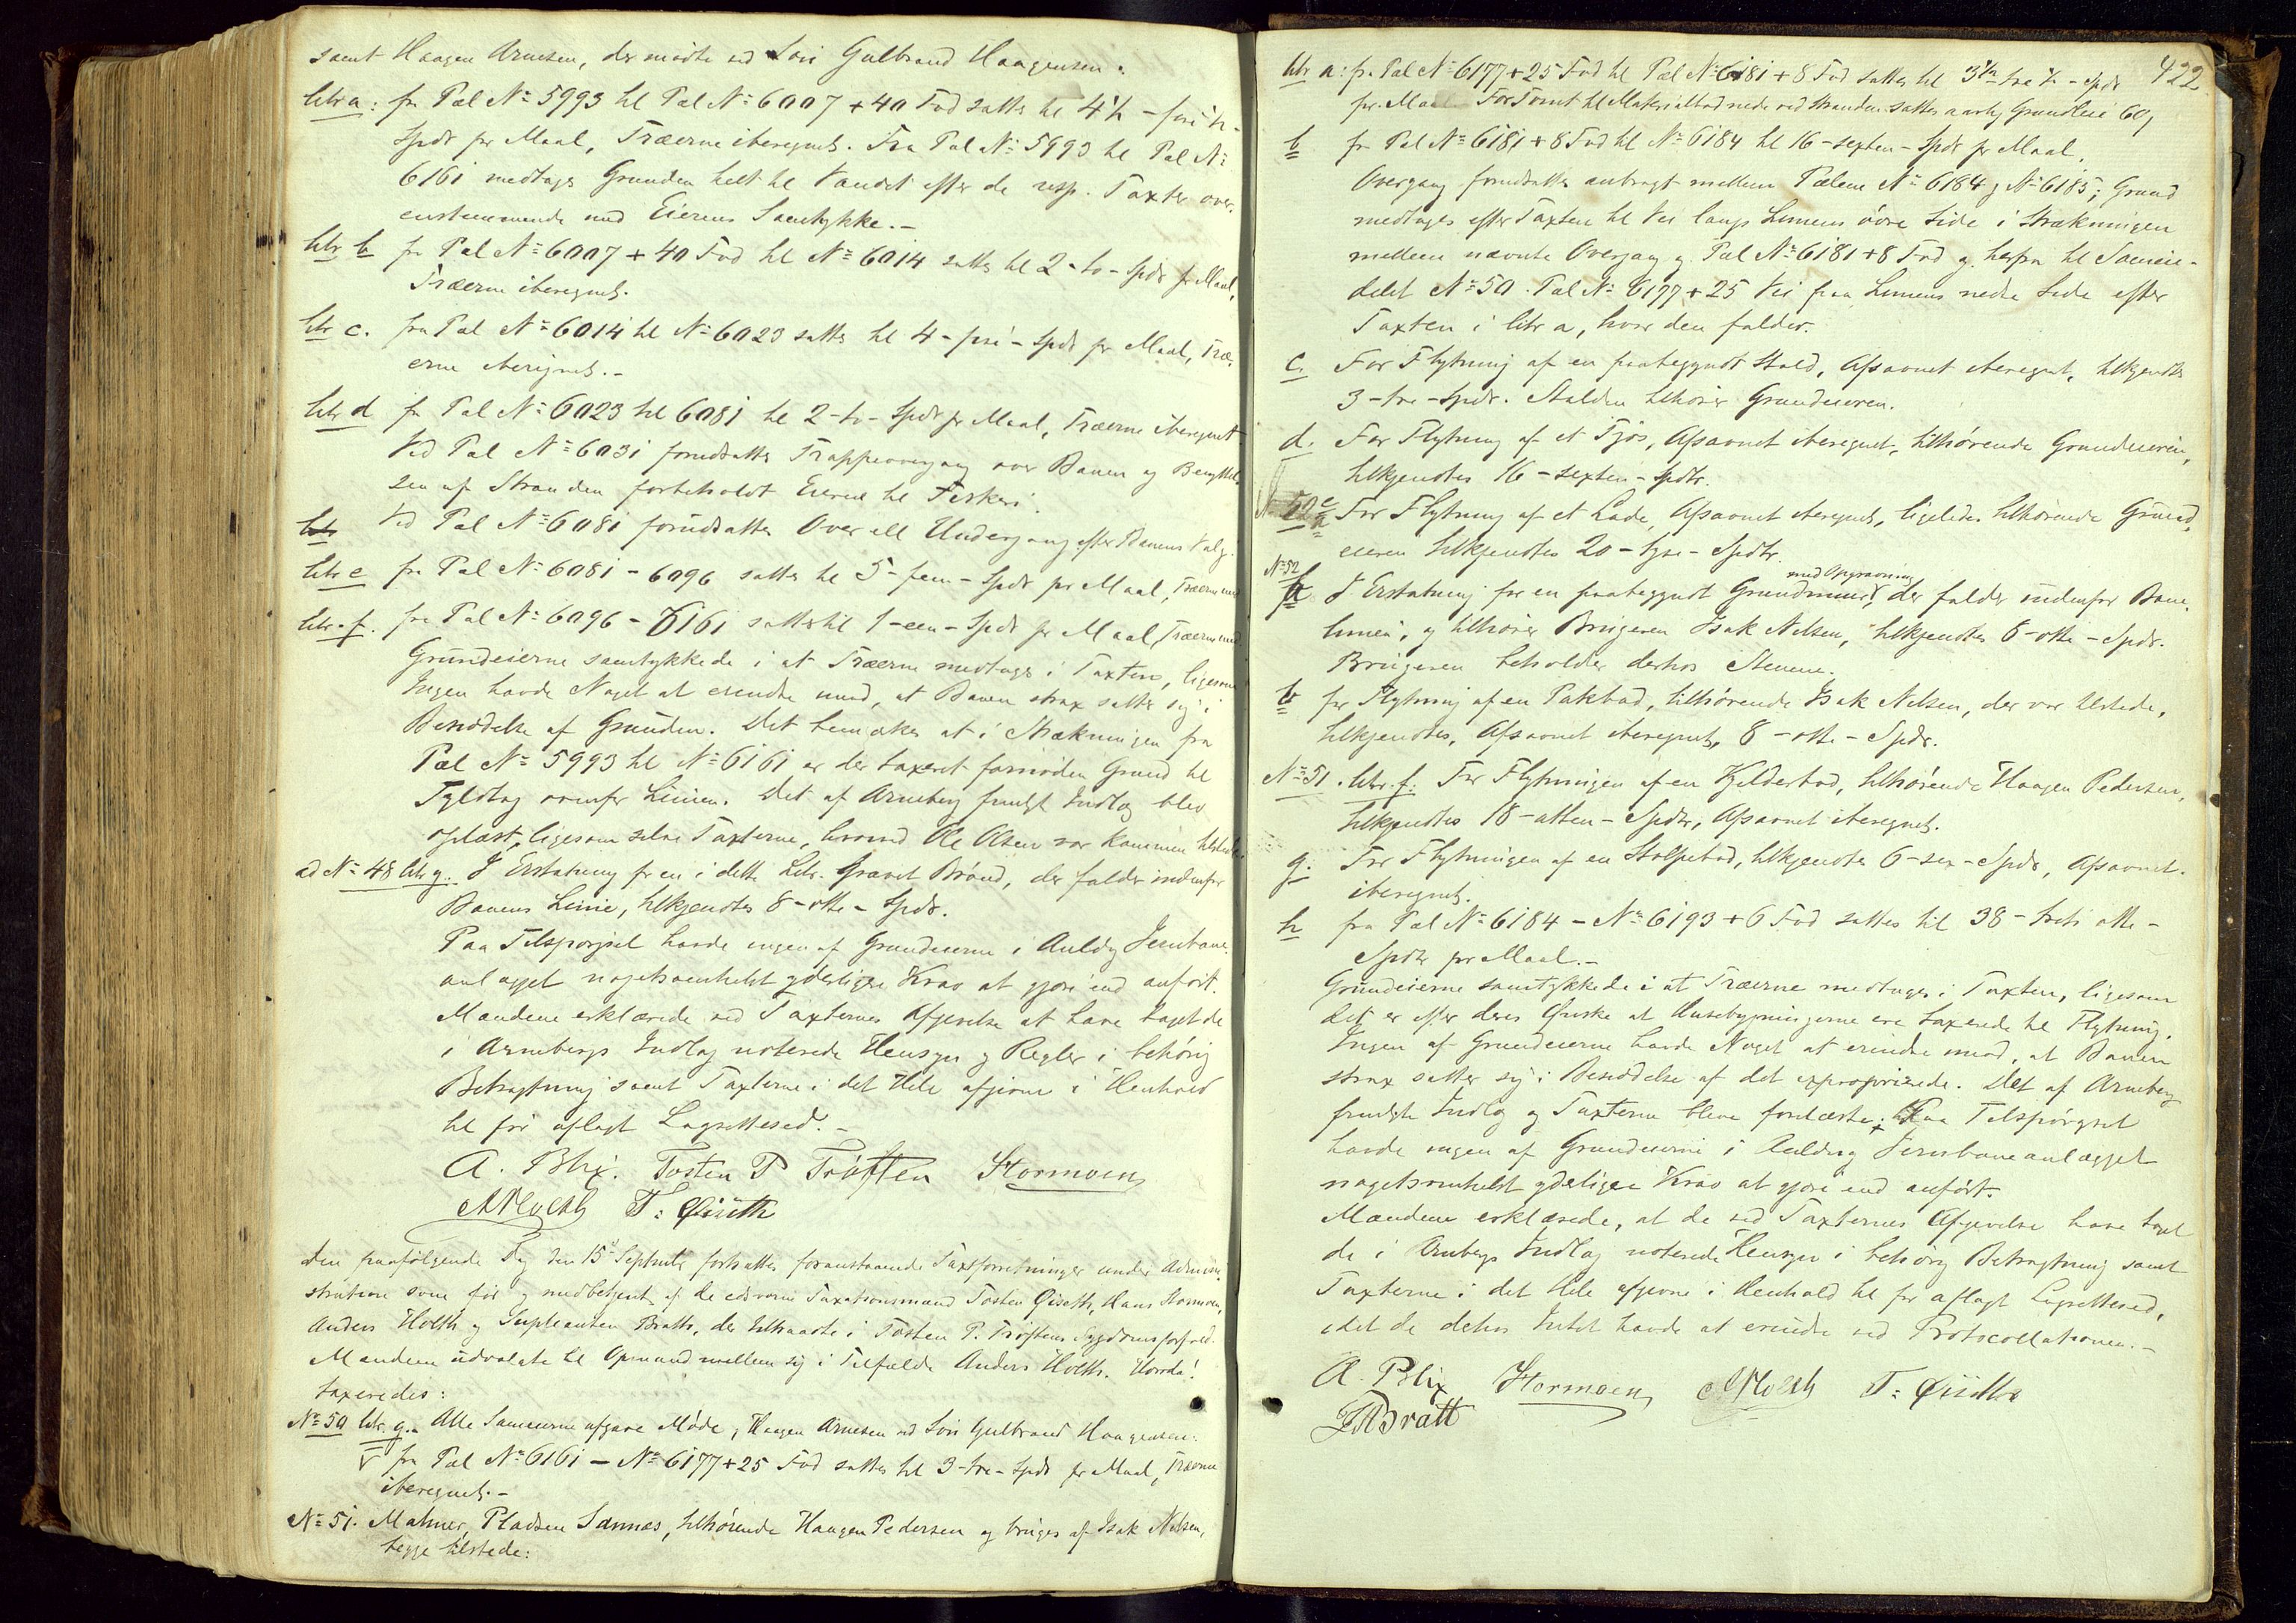 samt Haagen Arnesen, der mødte ved Søn Gulbrand Haagensen.
litr a: fra Pæl № 5993 til Pæl № 6007 + 40 Fod sattes til 4½ - fire ½ -
Spdr pr Maal, Træerne iberegnet. Fra Pæl № 5993 til Pæl №
6161 medtages Grunden helt til Vandet efter de resp. Taxter over-
ensstemmende med Eierens Samtykke. -
litr b fra Pæl № 6007 + 40 Fod til № 6014 sattes til 2 - to - Spdr pr Maal,
Træerne iberegnet.
litr c. fra Pæl № 6014 til № 6023 sattes til 4 - fire - Spdr pr Maal, Træ-
erne iberegnet. -
litr d fra Pæl № 6023 til 6081 til 2 - to - Spdr pr Maal, Træerne iberegnet
Ved Pæl № 6031 forudsattes Trappeovergang over Banen og Benyttel-
sen af Stranden forbeholdt Eierne til Fiskeri.
Ved Pæl № 6081 forudsattes Over ell Undergang efter Banens Valg.
litr e fra Pæl № 6081 - 6096 sattes til 5 - fem - Spdr pr Maal, Træerne med
litr. f. fra Pæl № 6096 - 6161 sattes til 1 - een - Spdr pr Maal, Træerne med
Grundeierne samtykkede i at Træerne medtages i Taxten, ligesom
Ingen havde Noget at erindre mod, at Banen strax satte sig i
Besiddelse af Grunden. Det bemærkes at i Strækningen fra
Pæl № 5993 til № 6161 er der taxeret fornøden Grund til
Fyldtag ovenfor Linien. Det af Arneberg fremlagt Indlæg blev
oplæst, ligesom selve Taxterne, hvorved Ole Olsen var kommen tilstede.
ad № 48 litr g. I Erstatning for en i dette Litr. gravet Brønd, der falder indenfor
Banens Linie, tilkjendtes 8 - otte - Spdr.
Paa Tilspørgsel havde ingen af Grundeierne i Anledng Jernbane-
anlægget nogetsomhelst yderligere Krav at gjøre end anført.
Mændene erklærede ved Taxternes Afgivelse at have taget de
i Arnebergs Indlæg noterede Hensyn og Regler i behørig
Betragtning samt Taxterne i det Hele afgivne i Henhold
til før aflagt Lagrettesed. -
A. Blix. Tosten P Trøften Stormoen
AHolth T: Øiseth
Den paafølgende Dag den 15de Septmbr fortsattes foranstaaende Taxtforretninger under Admini-
stration som før og medbetjent af de edsvorne Taxationsmænd Tosten Øiseth, Hans Stormoen,
Anders Holth og Supleanten Bratt, der tiltraadte i Tosten P. Trøftens Sygdomsforfald.
Mændene udvalgte til Opmand mellem sig i Tilfælde Anders Holth. Hvorda!
taxeredes:
№ 50 litr. g. Alle Sameierne afgave Møde, Haagen Arnesen ved Søn Gulbrand Haagensen:
fra Pæl № 6161 - № 6177 + 25 Fod sattes til 3 - tre - Spdr pr Maal, Træerne
iberegnet. -
№ 51. Matnr, Pladsen Sannæs, tilhørende Haagen Pedersen og bruges af Isak Nilsen,
begge tilstede:
422
litr a: fra Pæl № 6177 + 25 Fod til Pæl № 6181 + 8 Fod sattes til 3½ - tre ½ - Spdr
pr. Maal For Tomt til Materialbod nede ved Stranden sattes aarlig Grundleie 60
b fra Pæl № 6181 + 8 Fod til № 6184 til 16 - sexten - Spdr pr Maal.
Overgang forudsattes anbragt mellem Pælene № 6184 og № 6185; Grund
medtages efter Taxten til Vei langs Liniens øvre Side i Strækningen
mellem nævnte Overgang og Pæl № 6181 + 8 Fod og herfra til Sameie-
delet № 50. Pæl № 6177 + 25 Vei paa Liniens nedre Side efter
Taxten i litr a, hvor den falder.
c. For Flytning af en paabegyndt Stald, Afsavnet iberegnet, tilkjendtes
3 - tre - Spdr. Stalden tilhører Grundeieren.
d. For Flytning af et Fjøs, Afsavnet iberegnet, tilhørende Grundeieren,
tilkjendtes 16 - sexten - Spdr.
e For Flytning af et Lade, Afsavnet iberegnet, ligeledes tilhørende Grund-
eieren tilkjendtes 20 - tyve - Spdr.
№ 52
med Opgravning
a I Erstatning for en paabegyndt Grundmuur, der falder indenfor Bane-
linien, og tilhører Brugeren Isak Nilsen, tilkjendtes 8 - otte - Spdr.
Brugeren beholder derhos Stenene.
b for Flytning af en Pakbod, tilhørende Isak Nilsen, der var tilstede,
tilkjendtes, Afsavnet iberegnet, 8 - otte - Spdr.
№ 51. litr. f: For Flytningen af en Kjelderbod, tilhørende Haagen Pedersen,
tilkjendtes 18 - atten - Spdr, Afsavnet iberegnet.
g. For Flytningen af en Stolpebod, tilkjendtes 6 - sex - Spdr, Afsavnet
iberegnet.
h fra Pæl № 6184 - № 6193 + 6 Fod sattes til 38 - treti otte -
Spdr pr Maal. -
Grundeierne samtykkede i at Træerne medtages i Taxten, ligesom
det er efter deres Ønske at Husebygningerne ere taxerede til Flytning.
Ingen af Grundeierne havde Noget at erindre mod, at Banen
strax satte sig i Besiddelse af det exproprierede. Det af Arneberg
fremlagte Indlæg og Taxterne bleve forelæste; Paa Tilspørgsel
havde ingen af Grundeierne i Anledng Jernbaneanlægget
nogetsomhelst yderligere Krav at gjøre end anført.
Mændene erklærede, at de ved Taxternes Afgivelse have taget
de i Arnebergs Indlæg noterede Hensyn i behørig Betragtning samt
Taxterne i det Hele afgivne i Henhold til før aflagt Lagrettesed,
idet de derhos Intet havde at erindre ved Protocollationen. -
A. Blix Stormoen AHolth T: Øiseth
Bratt